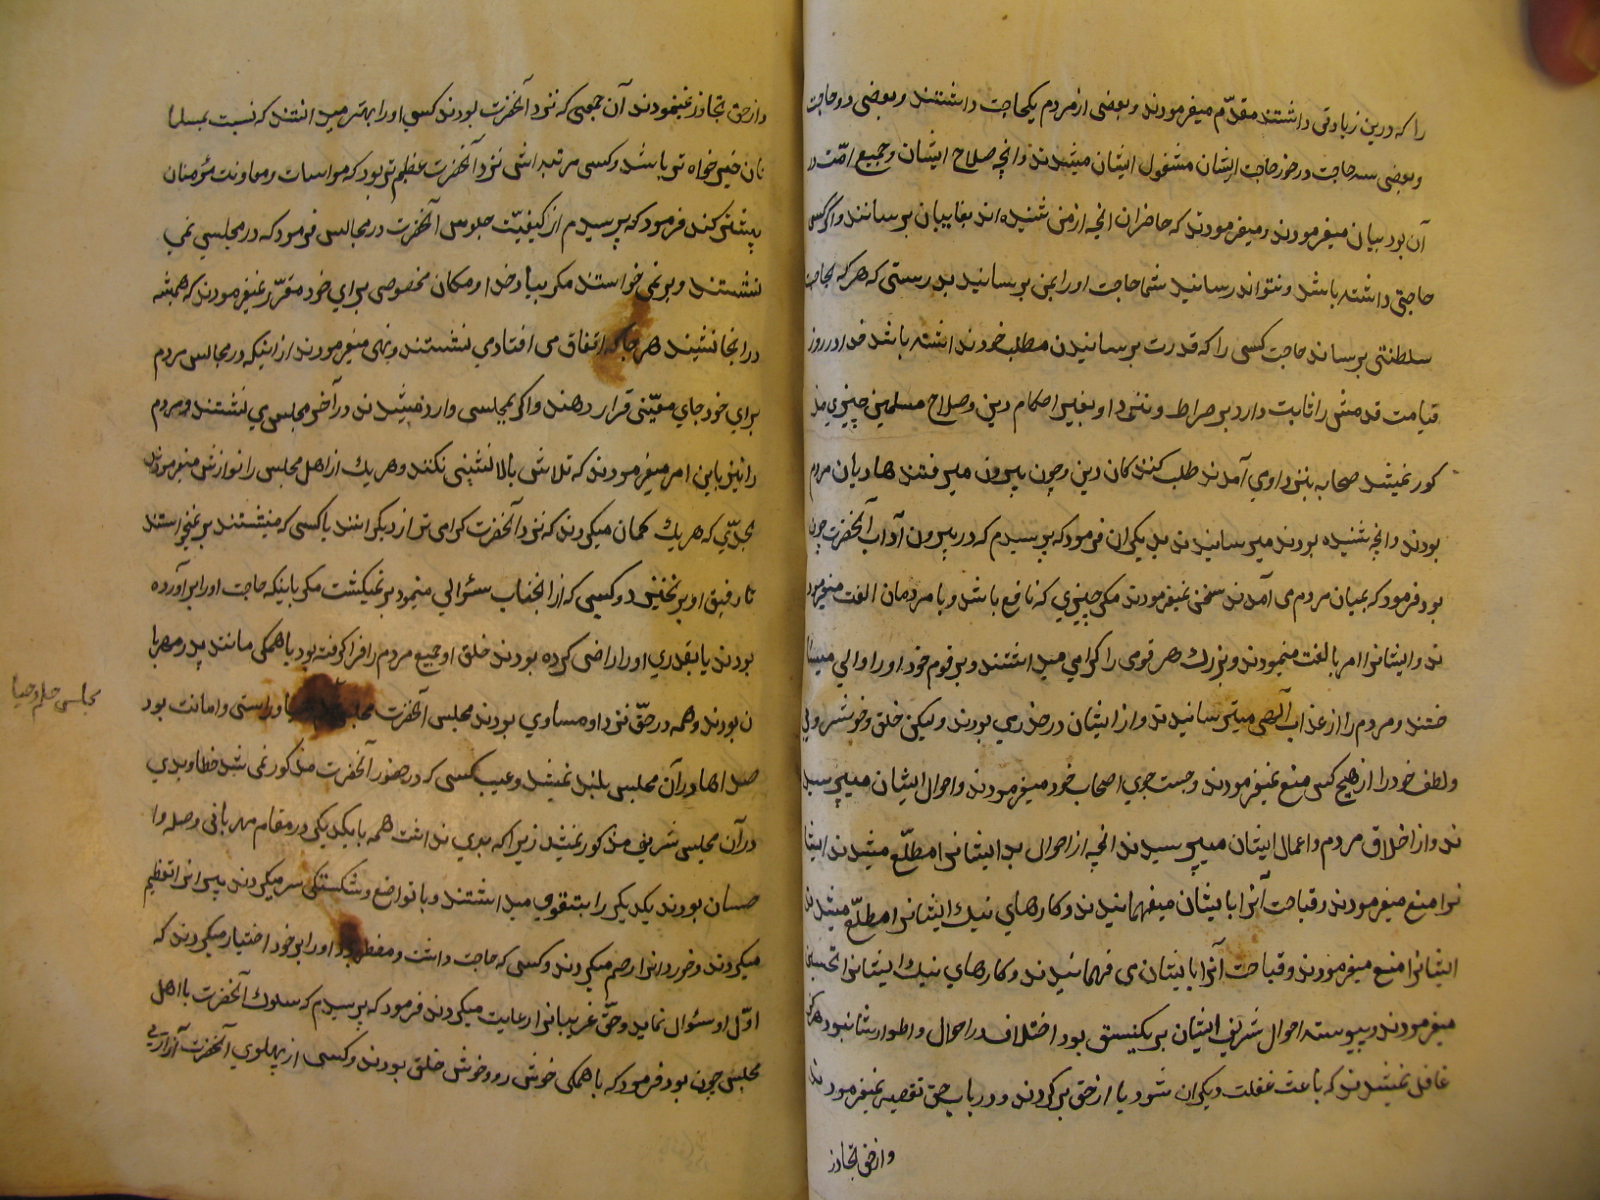 را که در دین زیادتی داشتند مقدّم میفرمودند و بعضی از مردم یکحاجت داشتند و بعضی دو حاجت
و بعضی سه حاجت در خور حاجت ایشان مشغول ایشان میشدند و انچه صلاح ایشان و جمیع امّت در
آن بود بیان میفرمودند و میفرمودند که حاضران انچه از من شنیده اند بغایبان برسانند و اگر کسی
حاجتی داشته باشد و نتواند رسانید شما حاجت او را بمن برسانید بدرستی که هر که بحاجت
سلطنتی برساند حاجت کسی را که قدرت برسانیدن مطلب خود نداشته باشد خدا در روز
قیامت قدمش را ثابت دارد بر صراط و نزد او بغیر احکام دین و صلاح مسلمین چیزی مذ
کور نمیشد صحابه بنزد اوی آمدند طلب کنندکان دین و چون بیرون میرفتند هادیان مردم
بودند و انچه شنیده بودند میرسانیدند بدیکران فرمود که پرسیدم که در بیرون آداب آنحضرت چون
بود فرمود که بمیان مردم می آمدند سخن نمیفرمودند مکر چیزی که نافع باشد و با مردمان الفت میفرمود
ند و ایشانرا امر بالفت مینمودند و بزرك هر قومی را کرامی میداشتند و بر قوم خود او را والی میسا
ختند و مردم را از عذاب آلهی میترسانیدند و از ایشان در حذر می بودند و لیکن خلق و خوشرویی
و لطف خود را از هیچ کس منع نمیفرمودند و جست جوی اصحاب خود میفرمودند و احوال ایشان میپرسید
ند و از اخلاق مردم و اعمال ایشان میپرسیدند انچه از احوال بد ایشانرا مطلّع میشدند ایشا
نرا منع میفرمودند و قباحت آنرا با ایشان میفهمانیدند و کارهای نیك ایشانرا مطلّع میشدند
ایشانرا منع میفرمودند و قباحت آنرا بایشان می فهمانیدند و کارهای نیك ایشانرا تحسین
میفرمودند و پیوسته احوال شریف ایشان بر یکنسق بود اختلاف در احوال و اطوار شانبود هرکز
غافل نمیشدند که باعث غفلت دیکران شود یا از حق برکردند و در باب حق تقصیر نمیفرمودند
و از حق تجاوز
و از حق تجاوز نمیمودند آن جمعی که نزد آنحضرت بودند کسی او را بهتر میدانتند که نسبت بمسلما
نان خیر خواه تر باشد و کسی مرتبه اش نزد آنحضرت عظیم تر بود که مواسات و معاونت مؤمنان
بیشتر کند فرمود که پرسیدم از کیفیّت جلوس آنحضرت در مجالس فرمود که در مجلسی نمی
نشستند و بر نمی خواستند مکر بیاد خدا و مکان مخصوصی برای خود مقرّر نمیفرمودند که همیشه
در انجا نشیند هر جا که اتفاق می افتاد می نشستند و نهی میفرمودند از اینکه در مجالس مردم
برای خود جای معیّنی قرار دهند و اکر بمجلسی وارد میشدند در آخر مجلس می نشستند و مردم
را نیز باین امر میفرمودند که تلاش بالا نشینی نکنند و هر یك از اهل مجلس را نوازش میفرمودند
بحدّی که هر یك کمان میکردند که نزد آنحضرت کرامی تر از دیکرانند با کسی که مینشستند بر نمیخواستند
تا رفیق او بر نخیزد و کسی که از انجناب سئوالی مینمود بر نمیکشت مکر باینکه حاجت او را بر آورده
بودند یا بقدری او را راضی کرده بودند خلق او جمیع مردم را فرا کرفته بود با همکی مانند پدر مهربا
ن بودند و همه در حقّ نزد او مساوی بودند مجلس آنحضرت مجلس و راستی و امانت بود
مجلس حلم و حیا
صداها در آن مجلس بلند نمیشد و عیب کسی که در حضور آنحضرت مذکور نمی شد خطا و بدی
در آن مجلس شریف مذکور نمیشد زیرا که بدی نداشت همه با یکدیکر در مقام مهربانی وصله و ا
حسان بودند یکدیکر را بتقوی میداشتند و با تواضع و شکستکی سر میکردند پیرانرا تعظیم
میکردند و خوردانرا رحم میکردند و کسی که حاجت داشت و مضطر بود او را بر خود اختیار میکردند که
اوّل او سئوال نماید و حقّ غریبانرا رعایت میکردند فرمود که پرسیدم که سلوك آنحضرت با اهل
مجلس چون بود فرمود که با همکی خوش رو و خوش خلق بودند و کسی از پهلوی آنحضرت